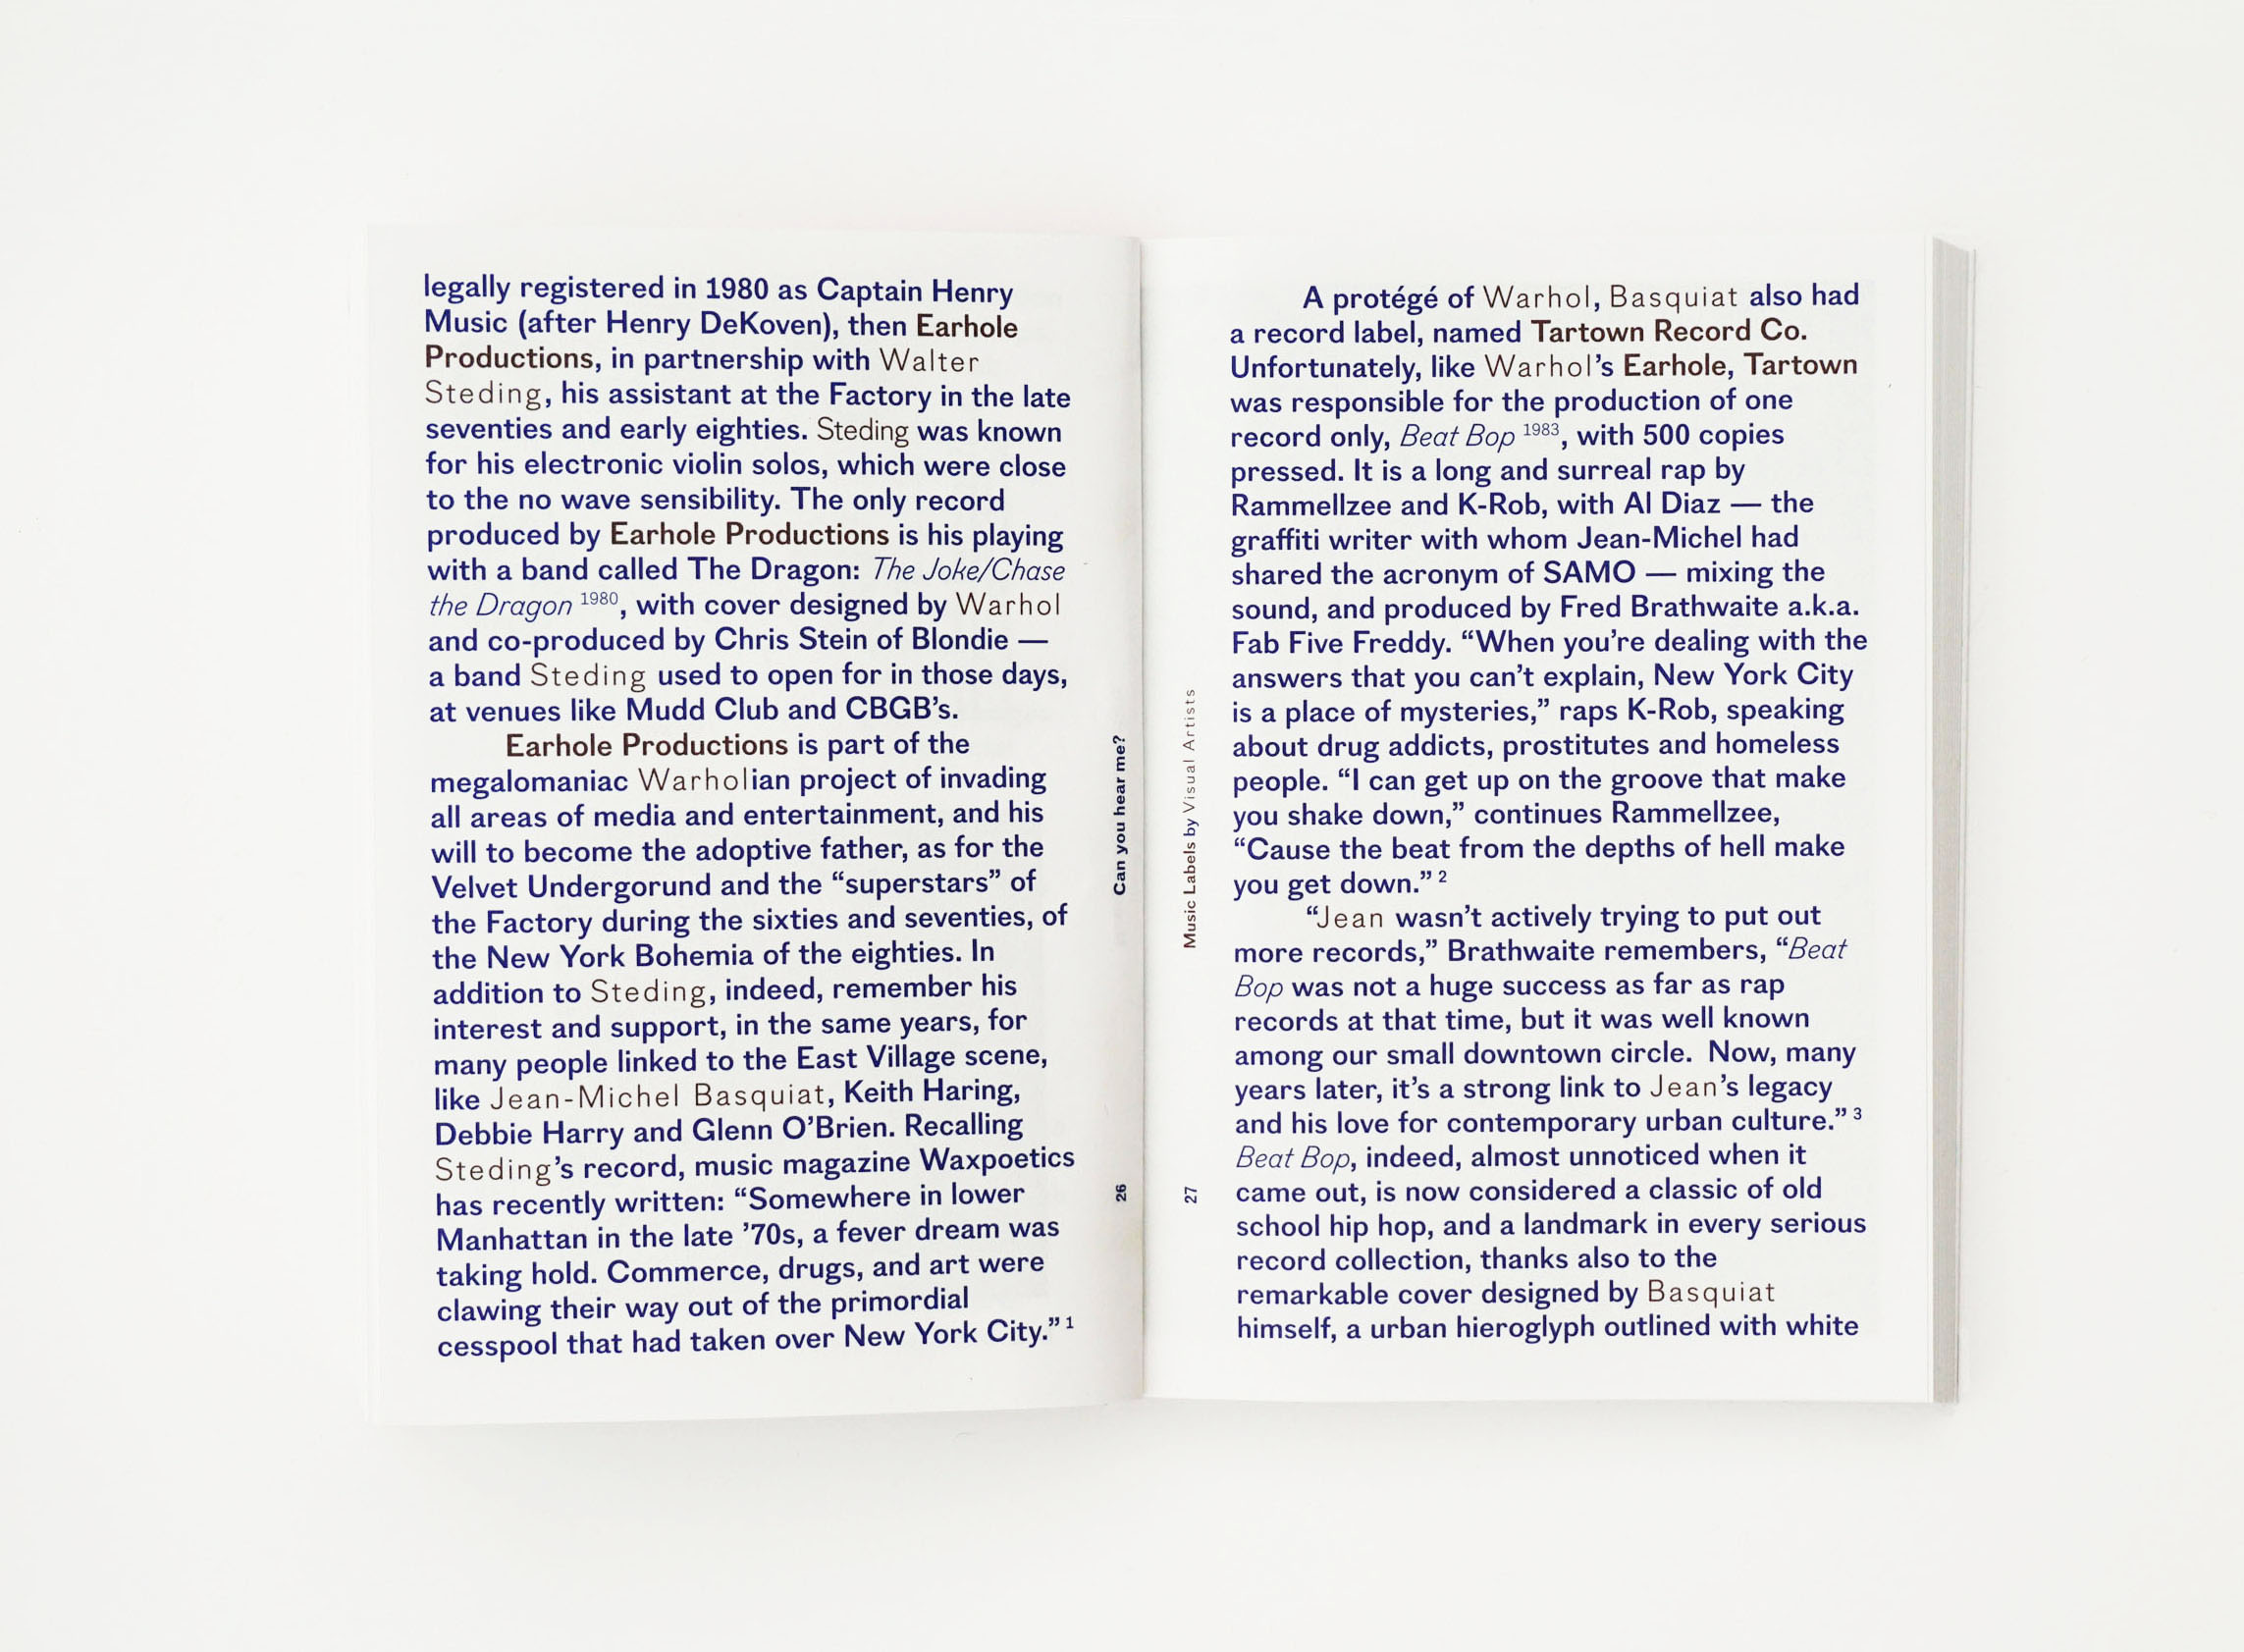 legally registered in 1980 as Captain Henry
Music (after Henry DeKoven), then Earhole
Productions, in partnership with Walter
Steding, his assistant at the Factory in the late
seventies and early eighties. Steding was known
for his electronic violin solos, which were close
to the no wave sensibility. The only record
produced by Earhole Productions is his playing
with a band called The Dragon: The Joke/Chase
the Dragon 1980, with cover designed by Warhol
and co-produced by Chris Stein of Blondie —
a band Steding used to open for in those days,
at venues like Mudd Club and CBGB’s.
Earhole Productions is part of the
megalomaniac Warholian project of invading
all areas of media and entertainment, and his
will to become the adoptive father, as for the
Velvet Undergorund and the “superstars” of
the Factory during the sixties and seventies, of
the New York Bohemia of the eighties. In
addition to Steding, indeed, remember his
interest and support, in the same years, for
many people linked to the East Village scene,
like Jean-Michel Basquiat, Keith Haring,
Debbie Harry and Glenn O’Brien. Recalling
Steding’s record, music magazine Waxpoetics
has recently written: “Somewhere in lower
Manhattan in the late ’70s, a fever dream was
taking hold. Commerce, drugs, and art were
clawing their way out of the primordial
cesspool that had taken over New York City.” 1
Can you hear me?
26
Music Labels by Visual Artists
27
A protégé of Warhol, Basquiat also had
a record label, named Tartown Record Co.
Unfortunately, like Warhol’s Earhole, Tartown
was responsible for the production of one
record only, Beat Bop 1983, with 500 copies
pressed. It is a long and surreal rap by
Rammellzee and K-Rob, with Al Diaz — the
graffiti writer with whom Jean-Michel had
shared the acronym of SAMO — mixing the
sound, and produced by Fred Brathwaite a.k.a.
Fab Five Freddy. “When you’re dealing with the
answers that you can’t explain, New York City
is a place of mysteries,” raps K-Rob, speaking
about drug addicts, prostitutes and homeless
people. “I can get up on the groove that make
you shake down,” continues Rammellzee,
“Cause the beat from the depths of hell make
you get down.” 2
“Jean wasn’t actively trying to put out
more records,” Brathwaite remembers, “Beat
Bop was not a huge success as far as rap
records at that time, but it was well known
among our small downtown circle. Now, many
years later, it’s a strong link to Jean’s legacy
and his love for contemporary urban culture.” 3
Beat Bop, indeed, almost unnoticed when it
came out, is now considered a classic of old
school hip hop, and a landmark in every serious
record collection, thanks also to the
remarkable cover designed by Basquiat
himself, a urban hieroglyph outlined with white